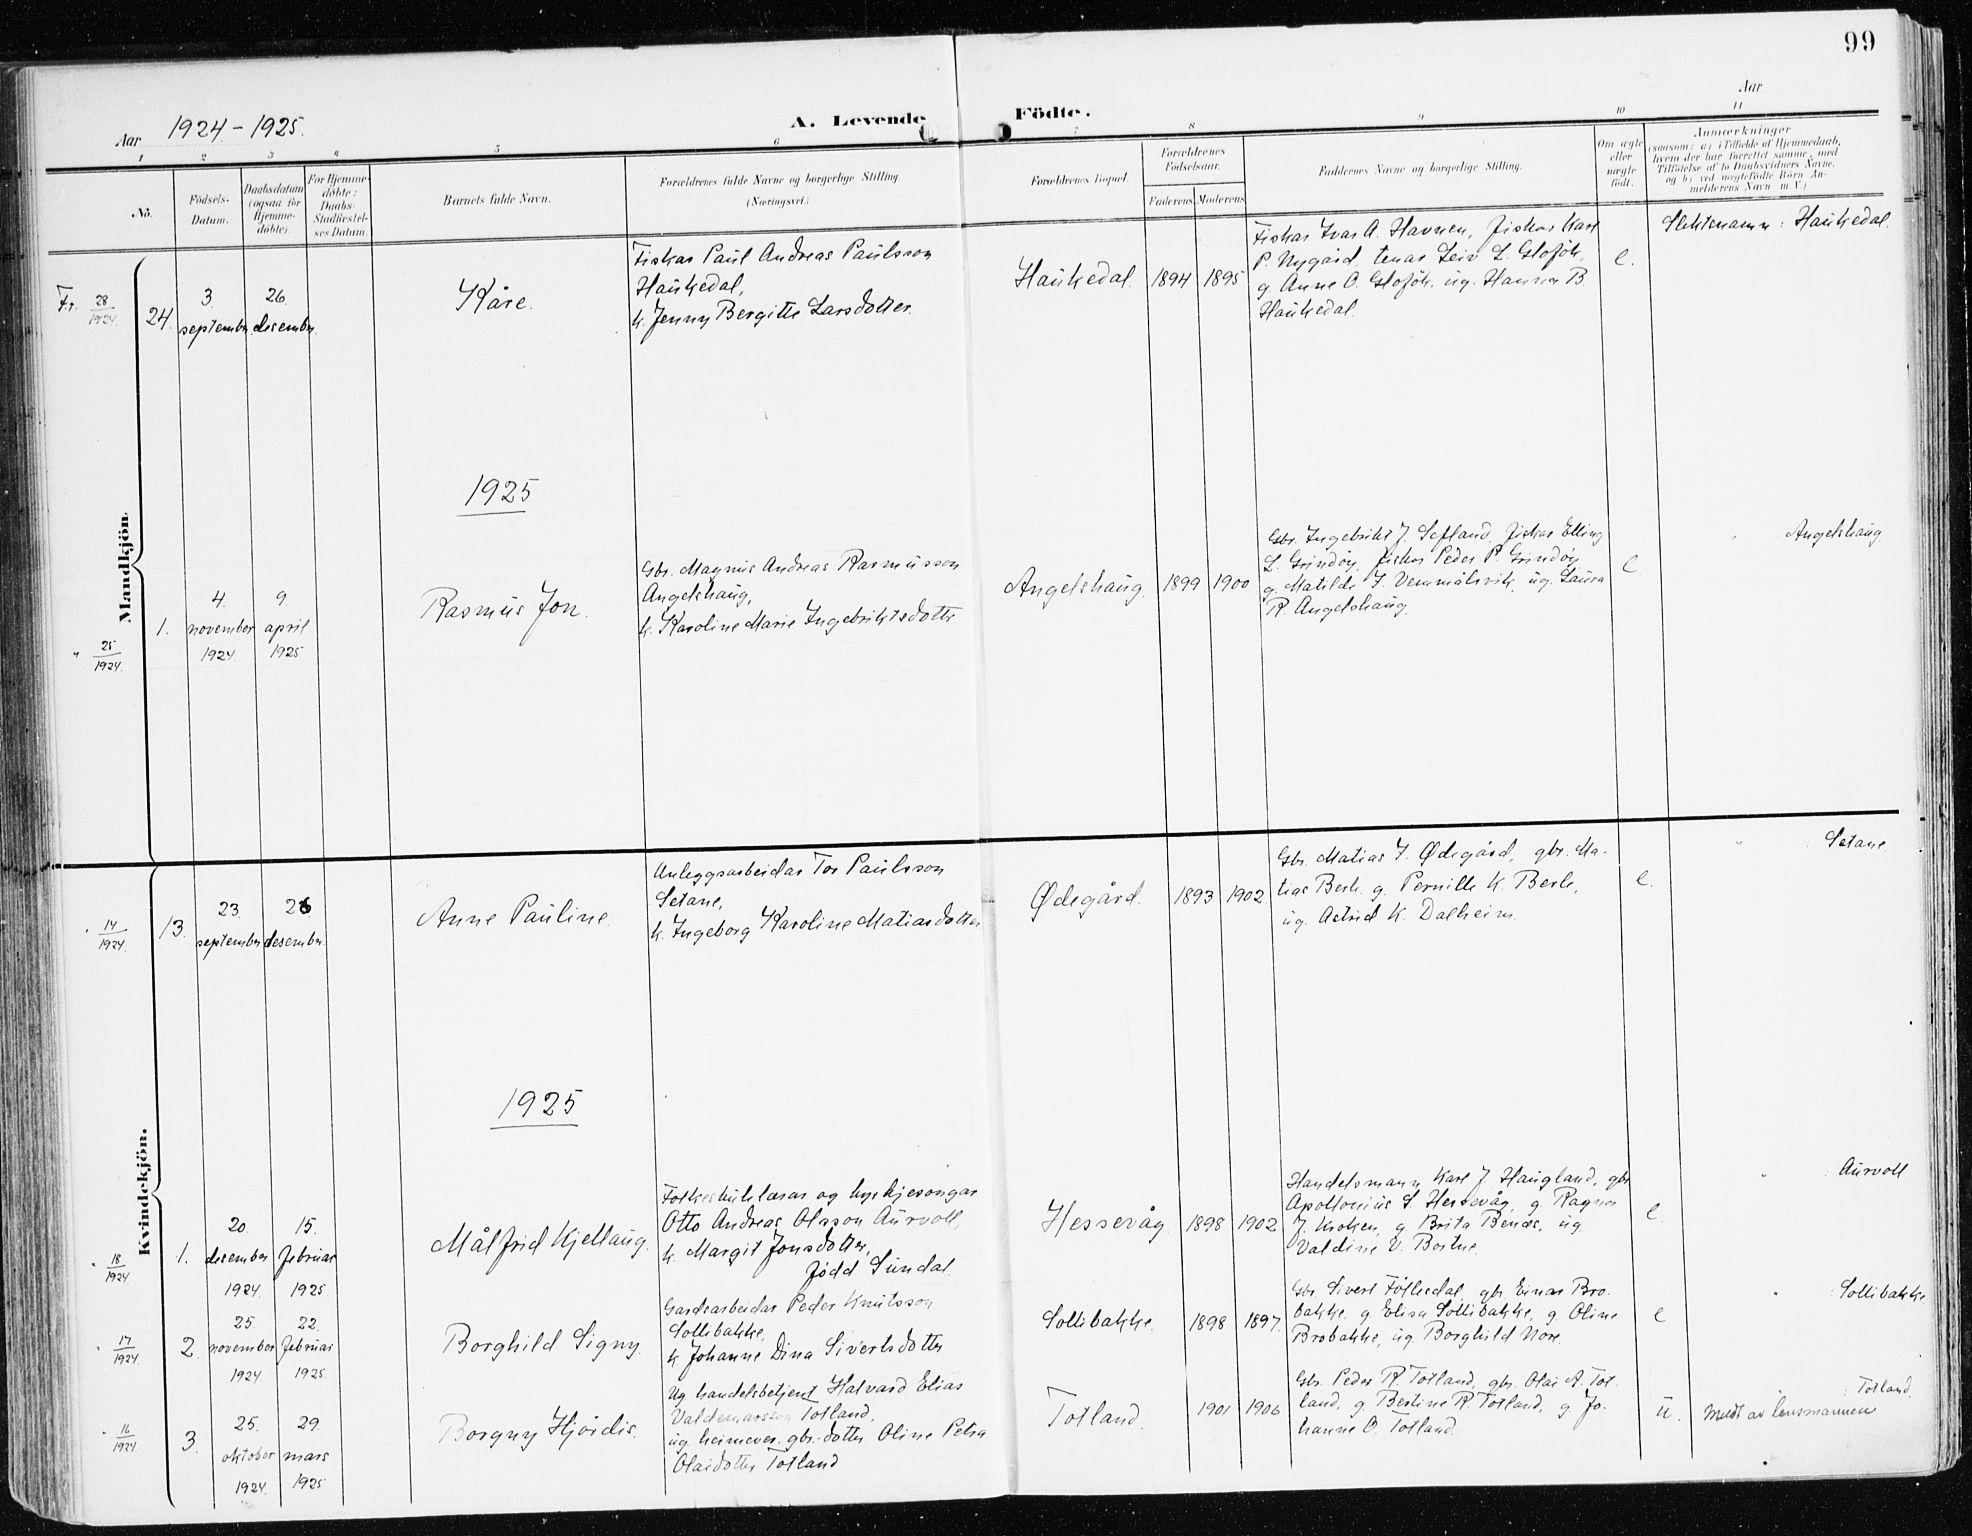 99
Aar 1924-1925.
A. Levende Födte.
Aar
1 2 3 4 5 6 7 8 9 10 11
No.
Födsels-
Datum.
Daabsdatum
(ogsaa for
Hjemme-
döbte).
For Hjemme-
döbte:
Daabs-
Stadfæstel-
ses Datum.
Barnets fulde Navn.
Forældrenes fulde Navne og borgerlige Stilling.
(Næringsvei.)
Forældrenes Bopæl.
Forældrenes
Födselsaar.
Faderens Moderens
Faddernes Navne og borgerlige Stilling.
Om ægte
eller
uægte
födt.
Anmærkninger
(saasom: a) i Tilfælde af Hjemmedaab,
hvem der har forrettet samme, med
Tilföielse af to Daabsvidners Navne,
og b) ved uægtefödte Börn An-
melderens Navn m. V.)
Mandkjön.
Fr. 28/1924
24.
3 september
26 desember.
Kåre.
Fiskar Paul Andreas Paulsson
Haukedal,
k. Jenny Bergitte Larsdotter.
Haukedal. 1894 1895
Fiskar Ivar A. Havnen, fiskar Karl
P. Nygård, tenar Leiv L.
g. Anne O. ug. Hanna B.
Haukedal.
e.
Slektsnamn: Haukedal.
1925
" 25/1924.
1.
4. november 1924.
9. april 1925
Rasmus Jon.
Gbr. Magnus Andreas Rasmusson
Angelshaug,
k. Karoline Marie Ingebriktsdotter
Angelshaug. 1899 1900
Gbr. Ingebrikt J. Sefland, fiskar Elling
L. Grindøy, fiskar Peder P. Grindøy
g. Matilde J. Vemmålsvik, ug. Laura
R. Angelshaug.
e.
" Angelshaug.
Kvindekjön.
" 14/1924.
13.
23. september
26 desember.
Anne Pauline.
Anleggsarbeidar Tor Paulsson
Setane,
k. Ingeborg Karoline Matiasdotter
Ødegård. 1893 1902
Gbr. Matias J. Ødegård, gbr. Ma-
tias Berle, g. Pernille K. Berle,
ug. Astrid K. Dalheim.
e.
" : Setane
1925
" 18/1924.
1.
20. desember 1924
15. februar 1925.
Målfrid Kjellaug.
Folkeskulelærar og kyrkjesongar
Otto Andreas Olsson Aurvoll,
k. Margit Jonsdotter,
fødd Sundal.
Hessevåg. 1898 1902
Handelsmann Karl J. Haugland, gbr
Apollonius S. Hessevåg, g. Ragna
J. Kroken, g Brita Benæs, ug
Valdine V. Bortne.
e.
" : Aurvoll
" 17/1924.
2.
25. november 1924
22. februar 1925.
Borghild Signy.
Gardsarbeidar Peder Knutsson
Sollibakke,
k Johanne Dina Sivertsdotter
Sollibakke. 1898 1897.
Gbr. Sivert Følkedal, gbr Einar Bro-
bakke, g. Elisa Sollibakke, g. Oline
Brobakke, ug Borghild Nore.
e
" : Sollibakke
" 16/1924.
3.
25. oktober 1924.
29. mars 1925
Borgny Hjørdis.
Ug handelsbetjent Halvard Elias
Valdemarsson Totland,
ug. heimever. gbr.-dotter Oline Petra
Olaidotter Totland
Totland. 1901 1906
Gbr. Peder R. Totland, gbr. Olai A. Tot-
land, g. Bertine R Totland, g. Jo-
hanne O. Totland.
u.
" : Totland.
Meldt av lensmannen